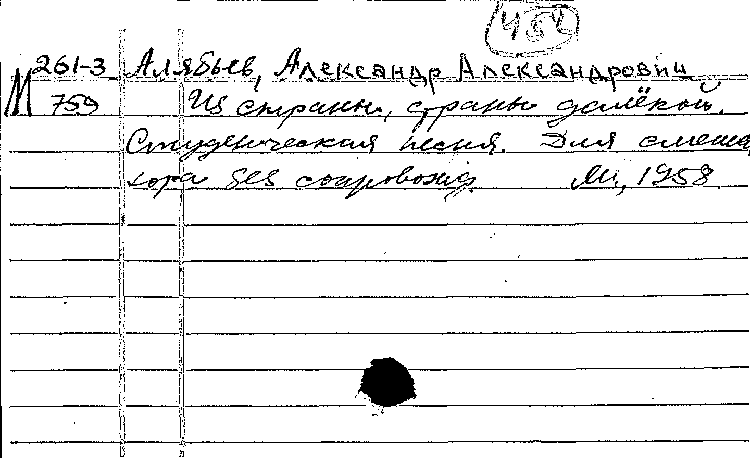 452
261-3 Алябьев, Александр Александрович
М 759 Из страны, страны далёкой.
Студенческая песня. Для смеша
хора без сопровожд. М., 1958